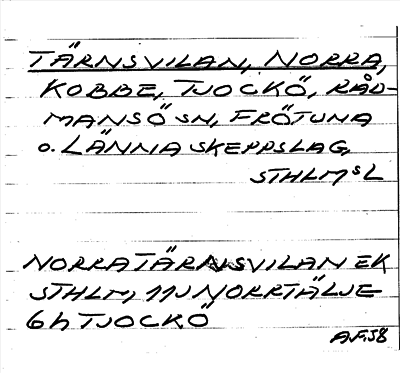 TÄRNSVILAN, NORRA,
KOBBE, TJOCKÖ, RÅD-
MANSÖ SN, FRÖTUNA
o. LÄNNA SKEPPSLAG,
STHLMS L
NORRA TÄRNSVILAN EK
STHLM, 11J NORRTÄLJE
6h TJOCKÖ
A.F. 58